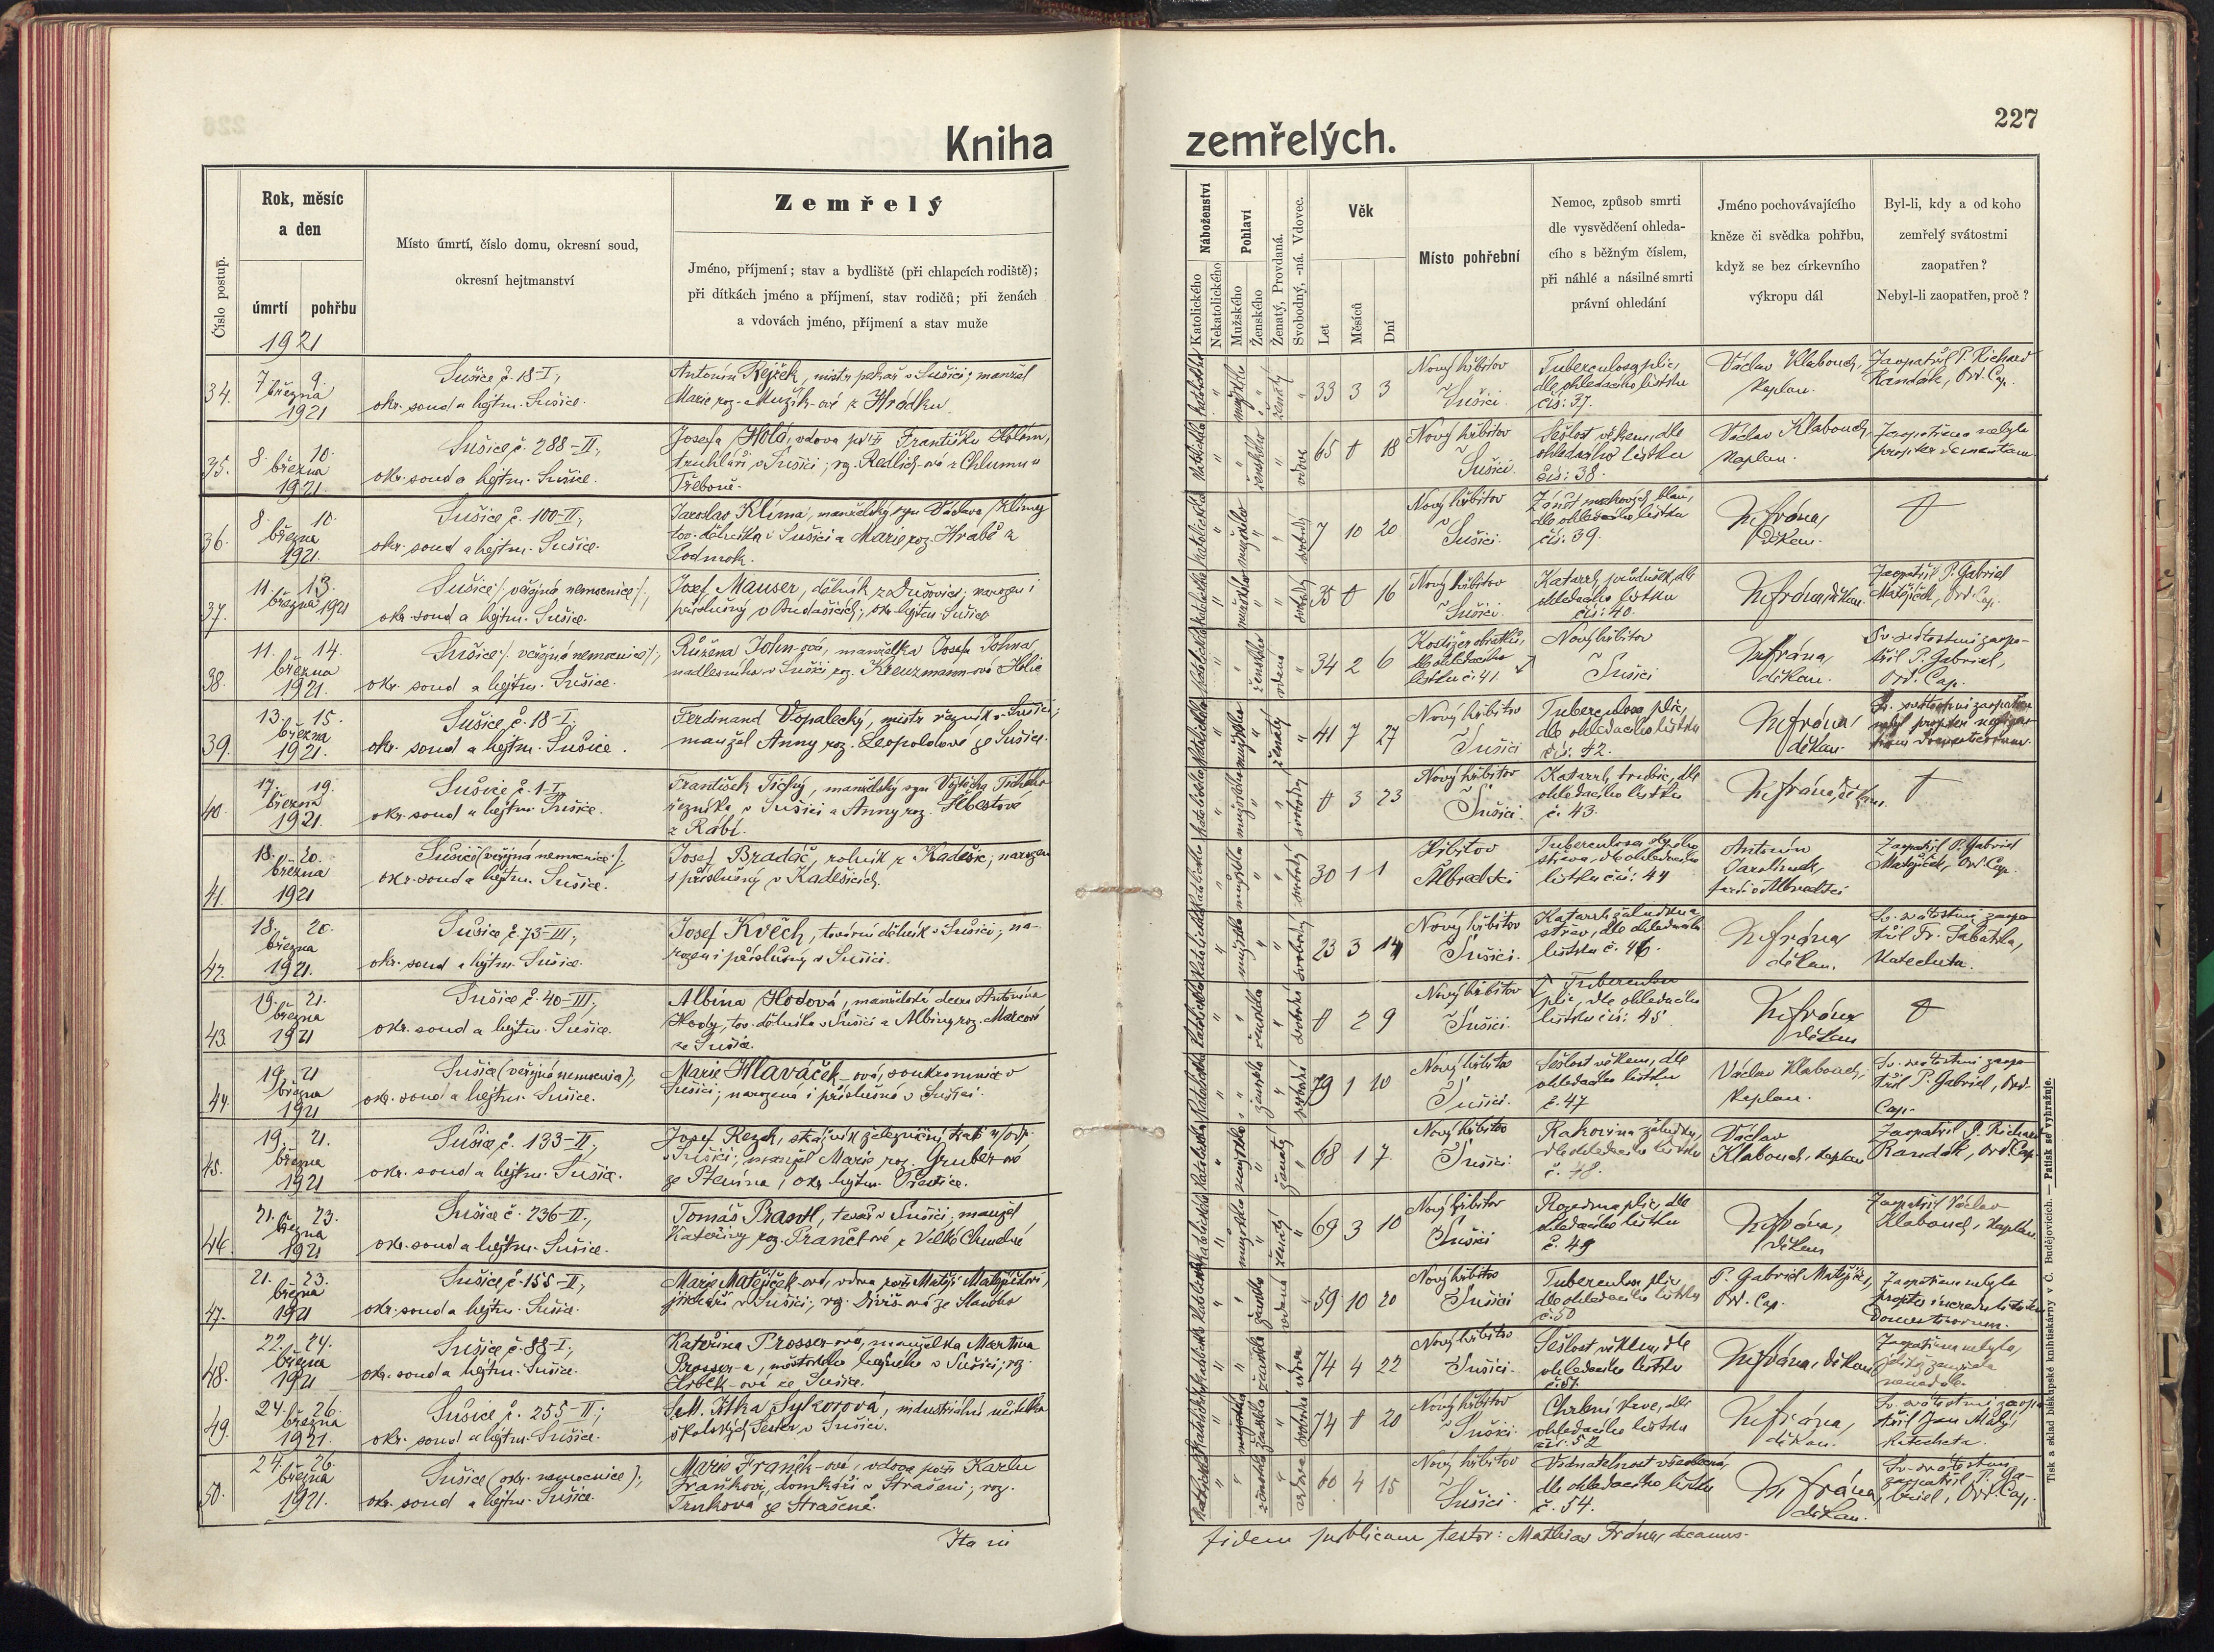 Kniha
zemřelých.
227
Číslo postup.
Rok, měsíc
a den
úmrtí
pohřbu
1921
Místo úmrtí, číslo domu, okresní soud,
okresní hejtmanství
Zemřelý
Jméno, příjmení; stav a bydliště (při chlapcích rodiště);
při dítkách jméno a příjmení, stav rodičů; při ženách
a vdovách jméno, příjmení a stav muže
Náboženství
Katolického
Nekatolického
Pohlaví
Mužského
Ženského
Ženatý, Provdaná.
Svobodný, -ná. Vdovec.
Věk
Let
Měsíců
Dní
Místo pohřební
Nemoc, způsob smrti
dle vysvědčení ohleda-
cího s běžným číslem,
při náhlé a násilné smrti
právní ohledání
Jméno pochovávajícího
kněze či svědka pohřbu,
když se bez církevního
výkropu dál
Byl-li, kdy a od koho
zemřelý svátostmi
zaopatřen?
Nebyl-li zaopatřen, proč?
34.
7 9.
března
1921
Sušice č. 18-I,
okr. soud a hejtm. Sušice.
Antonín Rejžek, mistr pekař v Sušici; manžel
Marie roz. Mužík-ové z Hrádku
katolické
mužské
ženatý
33 3 3
Nový hřbitov
v Sušici.
Tuberculosa plic,
dle ohledacího lístku
čís: 37.
Václav Klabouch,
kaplan.
Zaopatřil P. Richard
Randák, Ord. Cap.
35.
8. 10.
března
1921.
Sušice č. 288-II,
okr. soud a hejtm. Sušice.
Josefa Holá, vdova po Františku Holém,
truhláři v Sušici; roz. Redlich-ová z Chlumu u
Třeboně.
ženské
vdova
65 0 18
Nový hřbitov
v Sušici.
Sešlost věkem, dle
ohledacího lístku
čís: 38.
Václav Klabouch
kaplan.
Zaopatřena nebyla
propter dementiam
36.
8. 10.
března
1921.
Sušice č. 100-II,
okr. soud a hejtm. Sušice.
Jaroslav Klíma, manželský syn Václava Klímy
tov. dělníka v Sušici a Marie roz. Hrabě z
Podmok.
mužské
svobodný
7 10 20
Nový hřbitov
v Sušici.
Zánět mozkových blan,
dle ohledacího lístku
čís: 39.
M. Fróna,
děkan.
37.
11. 13.
března 1921
Sušice /veřejná nemocnice/,
okr. soud a hejtm. Sušice.
Josef Mauser, dělník z Dušovic; narozen i
příslušný v Budašicích; okr. hejtm. Sušice
mužské
svobodný
35 0 16
Nový hřbitov
v Sušici.
Katarrh průdušek, dle
ohledacího lístku
čís: 40.
M. Fróna, děkan.
Zaopatřil P. Gabriel
Matějíček, Ord. Cap.
38.
11. 14.
března
1921.
Sušice /veřejná nemocnice/,
okr. soud a hejtm. Sušice.
Růžena John-ová, manželka Josefa Johna
nadlesníka v Sušici roz. Kreuzmann-ová
ženské
vdaná
34 2 6
dle ohledacího
lístku č. 41.
Nový hřbitov
v Sušici
M. Fróna,
děkan.
Sv. svátostmi zaopa-
třil P. Gabriel,
Ord. Cap.
39.
13. 15.
března
1921.
Sušice č. 18-I,
okr. soud a hejtm. Sušice.
Ferdinand Vopalecký, mistr řezník v Sušici;
manžel Anny roz. Leopoldové ze Sušice.
mužské
ženatý
41 7 27
Nový hřbitov
v Sušici
Tuberculosa plic,
dle ohledacího lístku
čís. 42.
M. Fróna,
děkan.
Sv. svátostmi zaopatřen
nebyl propter
domesticorum.
40.
17. 19.
března
1921.
Sušice č. 1-I,
okr. soud a hejtm. Sušice.
František Tichý, manželský syn Vojtěcha Tichého
řezníka v Sušici a Anny roz.
z Rábí.
mužské
svobodný
0 3 23
Nový hřbitov
v Sušici.
Katarrh trubic, dle
ohledacího lístku
č. 43.
M. Fróna, děkan.
41.
18. 20.
března
1921
Sušice (veřejná nemocnice),
okr. soud a hejtm. Sušice.
Josef Bradáč, rolník z Kadešic; narozen
i příslušný v Kadešicích.
mužské
svobodný
30 1 1
Hřbitov
Albrechtci
Tuberculosa slepého
střeva, dle ohledacího
lístku čís: 44
Antonín
Jarolímek,
farář v Albrechtci
Zaopatřil P. Gabriel
Matějíček, Ord. Cap.
42.
18. 20.
března
1921.
Sušice č. 73-III,
okr. soud a hejtm. Sušice.
Josef Kvěch, tovární dělník v Sušici; na-
rozen i příslušný v Sušici.
mužské
svobodný
23 3 14
Nový hřbitov
v Sušici.
Katarrh žaludku a
střev, dle ohledacího
lístku č. 46.
M. Fróna,
děkan.
Sv. svátostmi zaopa-
třil Fr. Sabátka,
katecheta.
43.
19. 21.
března
1921
Sušice č. 40-III,
okr. soud a hejtm. Sušice.
Albína Hodová, manželská dcera Antonína
Hody, tov. dělníka v Sušici a Albiny roz. Marcové
ze Sušice.
ženské
svobodná
0 2 9
Nový hřbitov
v Sušici.
Tuberculosa
plic, dle ohledacího
lístku čís: 45
M. Fróna
děkan
44.
19 21
března
1921
Sušice (veřejná nemocnice),
okr. soud a hejtm. Sušice.
Marie Hlaváček-ová, soukromnice v
Sušici; narozená i příslušná v Sušici.
ženské
svobodná
79 1 10
Nový hřbitov
v Sušici.
Sešlost věkem, dle
ohledacího lístku
č. 47
Václav Klabouch,
kaplan.
Sv. svátostmi zaopa-
třil P. Gabriel, Ord.
Cap.
45.
19. 21.
března
1921
Sušice č. 133-II,
okr. soud a hejtm. Sušice.
Josef Rezek, strážník železniční trati v/odp.
v Sušici; manžel Marie roz. Gruber-ové
ze Ptenína, okr. hejtm. Přeštice.
mužské
ženatý
68 1 7
Nový hřbitov
v Sušici.
Rakovina žaludku,
dle ohledacího lístku
č. 48.
Václav
Klabouch, kaplan
Zaopatřil P. Richard
Randák, Ord. Cap.
46.
21. 23.
března
1921
Sušice č. 236-II,
okr. soud a hejtm. Sušice.
Tomáš Brantl, tesař v Sušici, manžel
Kateřiny roz. z Velké Chmelné
mužské
ženatý
69 3 10
Nový hřbitov
v Sušici
Rozedma plic, dle
ohledacího lístku
č. 49
M. Fróna,
děkan
Zaopatřil Václav
Klabouch, kaplan
47.
21. 23.
března
1921
Sušice č. 155-II,
okr. soud a hejtm. Sušice.
Marie Matějíček-ová, vdova po Matěji Matějíčkovi,
v Sušici; roz. Diviš-ová ze
ženské
59 10 20
Nový hřbitov
v Sušici
Tuberculosa plic
dle ohledacího lístku
č. 50
P. Gabriel Matějíček,
Ord. Cap.
Zaopatřena nebyla
propter incredulitatem
domesticorum.
48.
22. 24.
března
1921
Sušice č. 88-I,
okr. soud a hejtm. Sušice.
Kateřina Prosser-ová, manželka Martina
Prosser-a, městského hajného v Sušici; roz.
Hrbek-ová ze Sušice.
ženské
vdova
74 4 22
Nový hřbitov
v Sušici.
Sešlost věkem, dle
ohledacího lístku
č. 51.
M. Fróna, děkan
Zaopatřena nebyla,
jelikož zemřela
nenadále.
49.
24. 26.
března
1921.
Sušice č. 255-II;
okr. soud a hejtm. Sušice.
S. M. Jitka Sykorová, industriální učitelka
školských Sester v Sušici.
ženské
svobodná
74 0 20
Nový hřbitov
v Sušici.
Chrlení krve, dle
ohledacího lístku
čís. 52
M. Fróna,
děkan.
Sv. svátostmi zaopa-
třil Jan Malý,
katecheta.
50.
24. 26.
března
1921.
Sušice (okr. nemocnice);
okr. soud a hejtm. Sušice.
Marie Franěk-ová, vdova po Karlu
Fraňkovi, domkáři v Strašeni; roz.
Trnková ze Strašené.
ženské
vdova
60 4 15
Nový hřbitov
v Sušici.
Vodnatelnost všeobecná,
dle ohledacího lístku
č. 54.
M. Fróna,
děkan.
Sv. svátostmi
zaopatřil P. Ga-
briel, Ord. Cap.
Ita in
fidem publicam testor: Mathias Fróna, decanus.
Tisk a sklad biskupské knihtiskárny v Č. Budějovicích. — Patisk se vyhražuje.